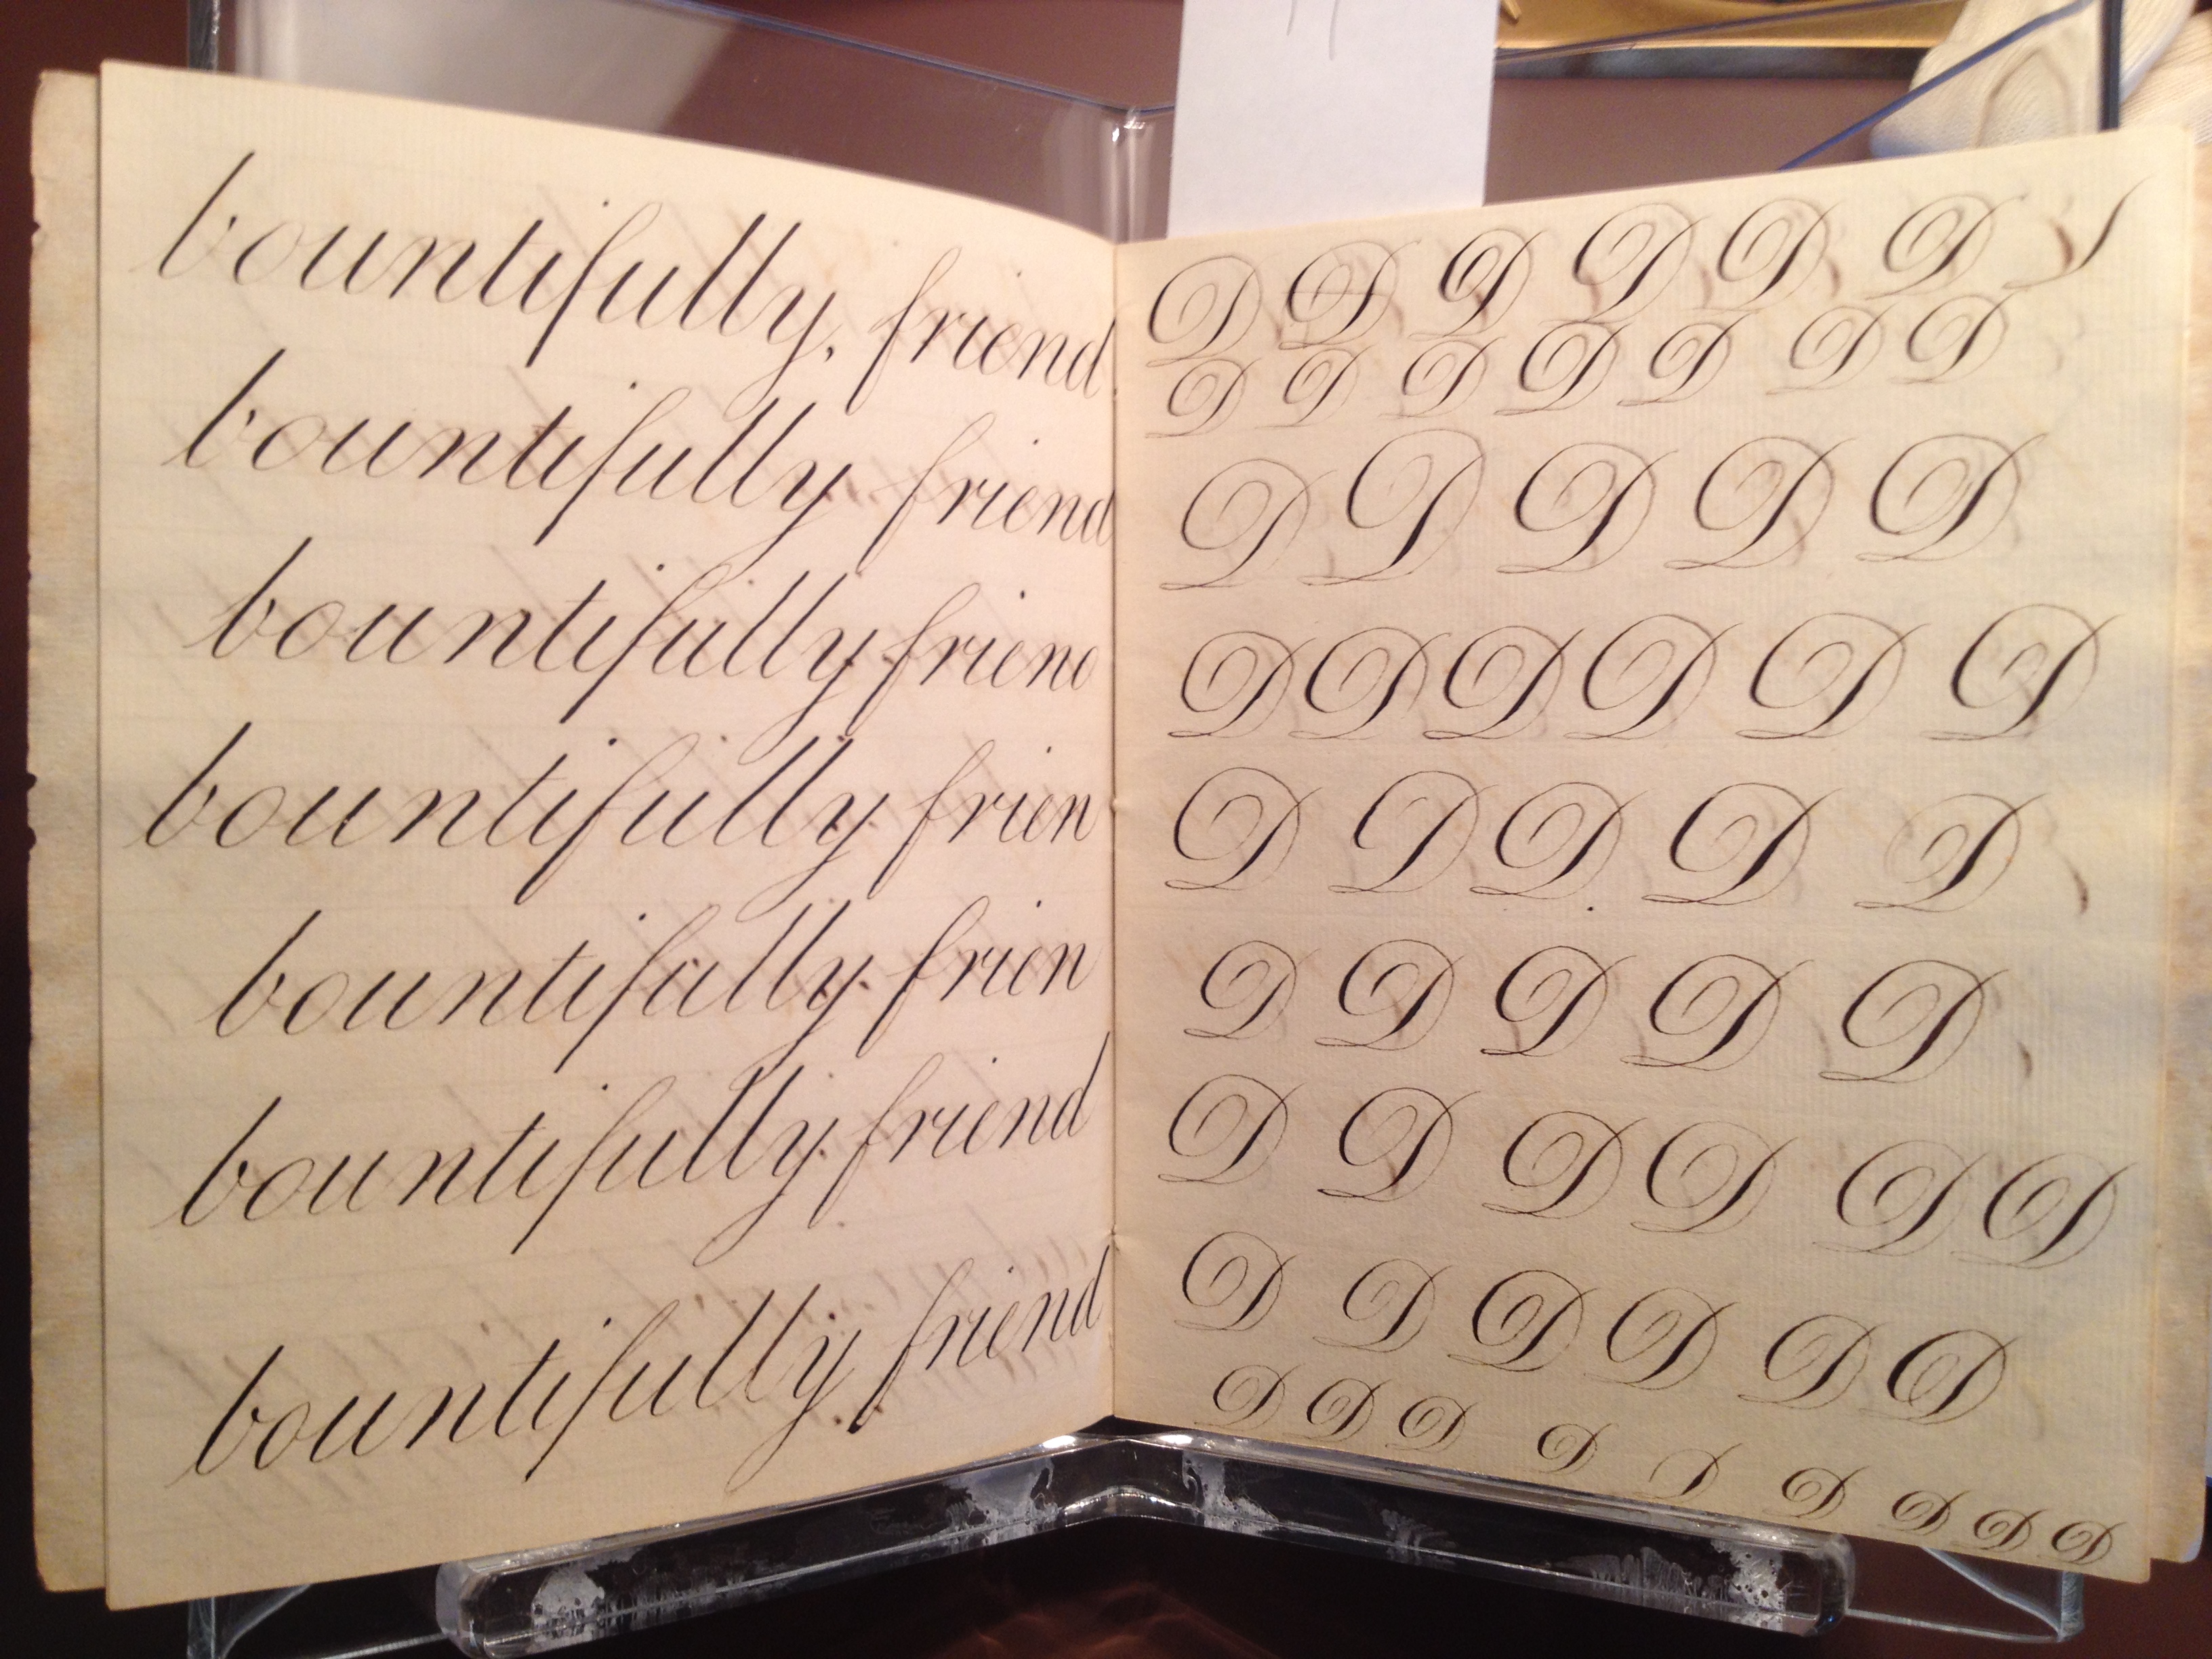 bountifully, friend
bountifully friend
bountifully friend
bountifully frien
bountifully frien
bountifully friend
bountifully friend
D D D D D D
D D D D D D D
D D D D D
D D D D D D
D D D D D
D D D D D
D D D D D D
D D D D D D
D D D D D D D D D